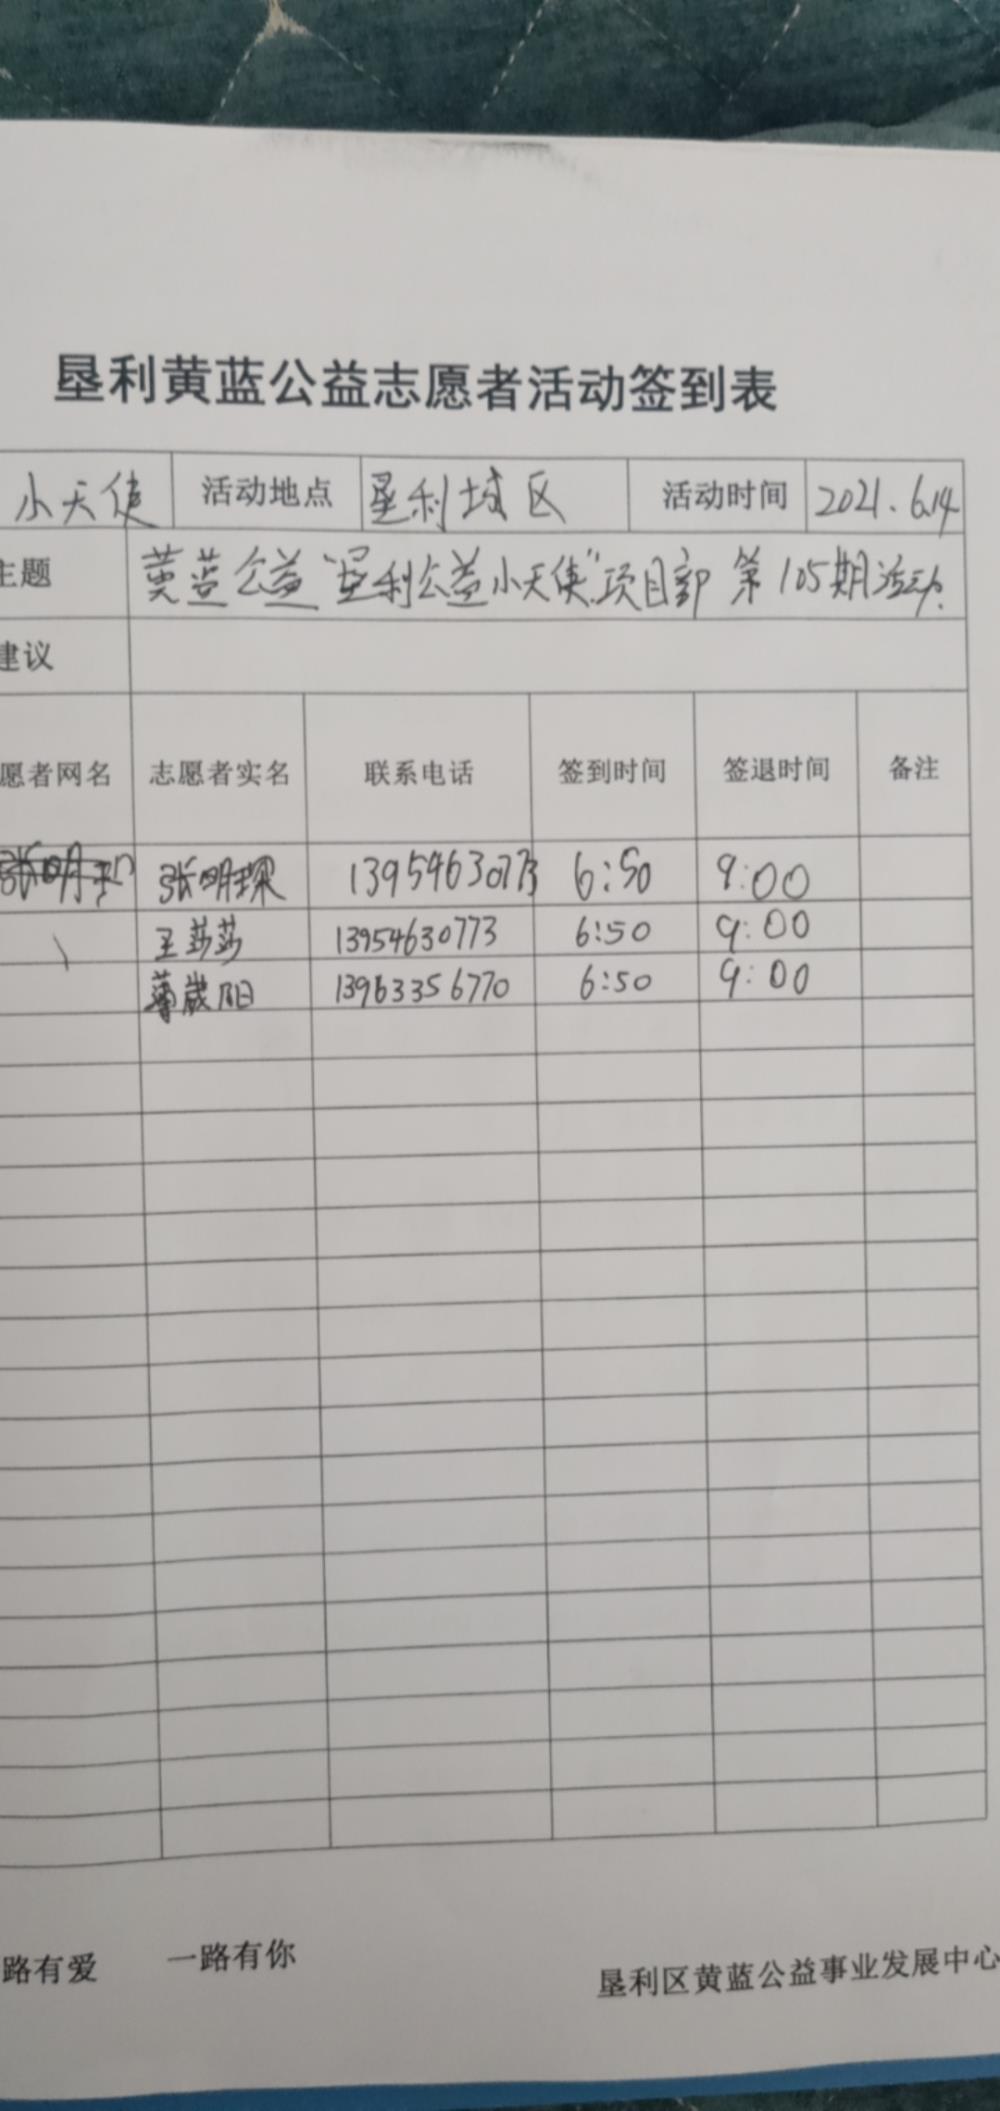 垦利黄蓝公益志愿者活动签到表
小天使 活动地点 垦利城区 活动时间 2021.6.14
主题 黄蓝公益"垦利公益小天使"项目部 第105期活动
建议
愿者网名 志愿者实名 联系电话 签到时间 签退时间 备注
张明 张明琛 13954630773 6:50 9:00
王莎莎 13954630773 6:50 9:00
13963356770 6:50 9:00
路有爱 一路有你
垦利区黄蓝公益事业发展中心